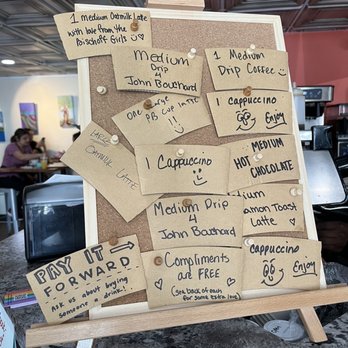 1 medium Oatmilk Latte
with love from the
Poischoff Girls
Medium
Drip
4
John Bouthard
1 Medium
Drip Coffee
1 Cappuccino
Enjoy
Large
one PB Cup Latte
Large
Oatmilk Latte
1 Cappuccino
Medium
Hot
Chocolate
Medium Drip
4
John Bouthard
Medium
Cinnamon Toast
Latte
Cappuccino
Enjoy
Pay It
Forward
Ask us about buying
someone a drink!
Compliments
are FREE
(see back of each
for some extra love)